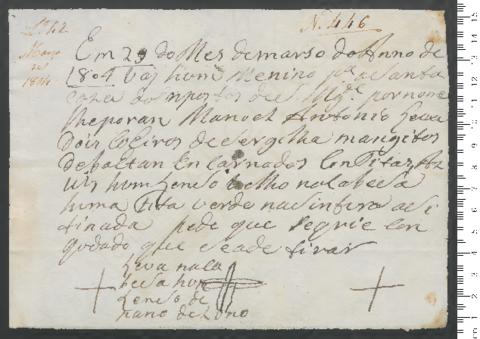 Nº 446
Março
1804
Em 29 do Mes de marso do Anno de
1804 vai hum Menino pª a Santa
Caza dos npostos de S. Mgde por nome
lheporan Manoel Antonio Leva
dois Coeiros de Sergilha mangitos
de baetan Encarnados Con fitas Az
uis hum Lenso velho na Cabesa
huma fita verde na sintura
tinada pede que se crie Con
qudado que se ade tirar
Leva na Ca
besa hum
Lenso de